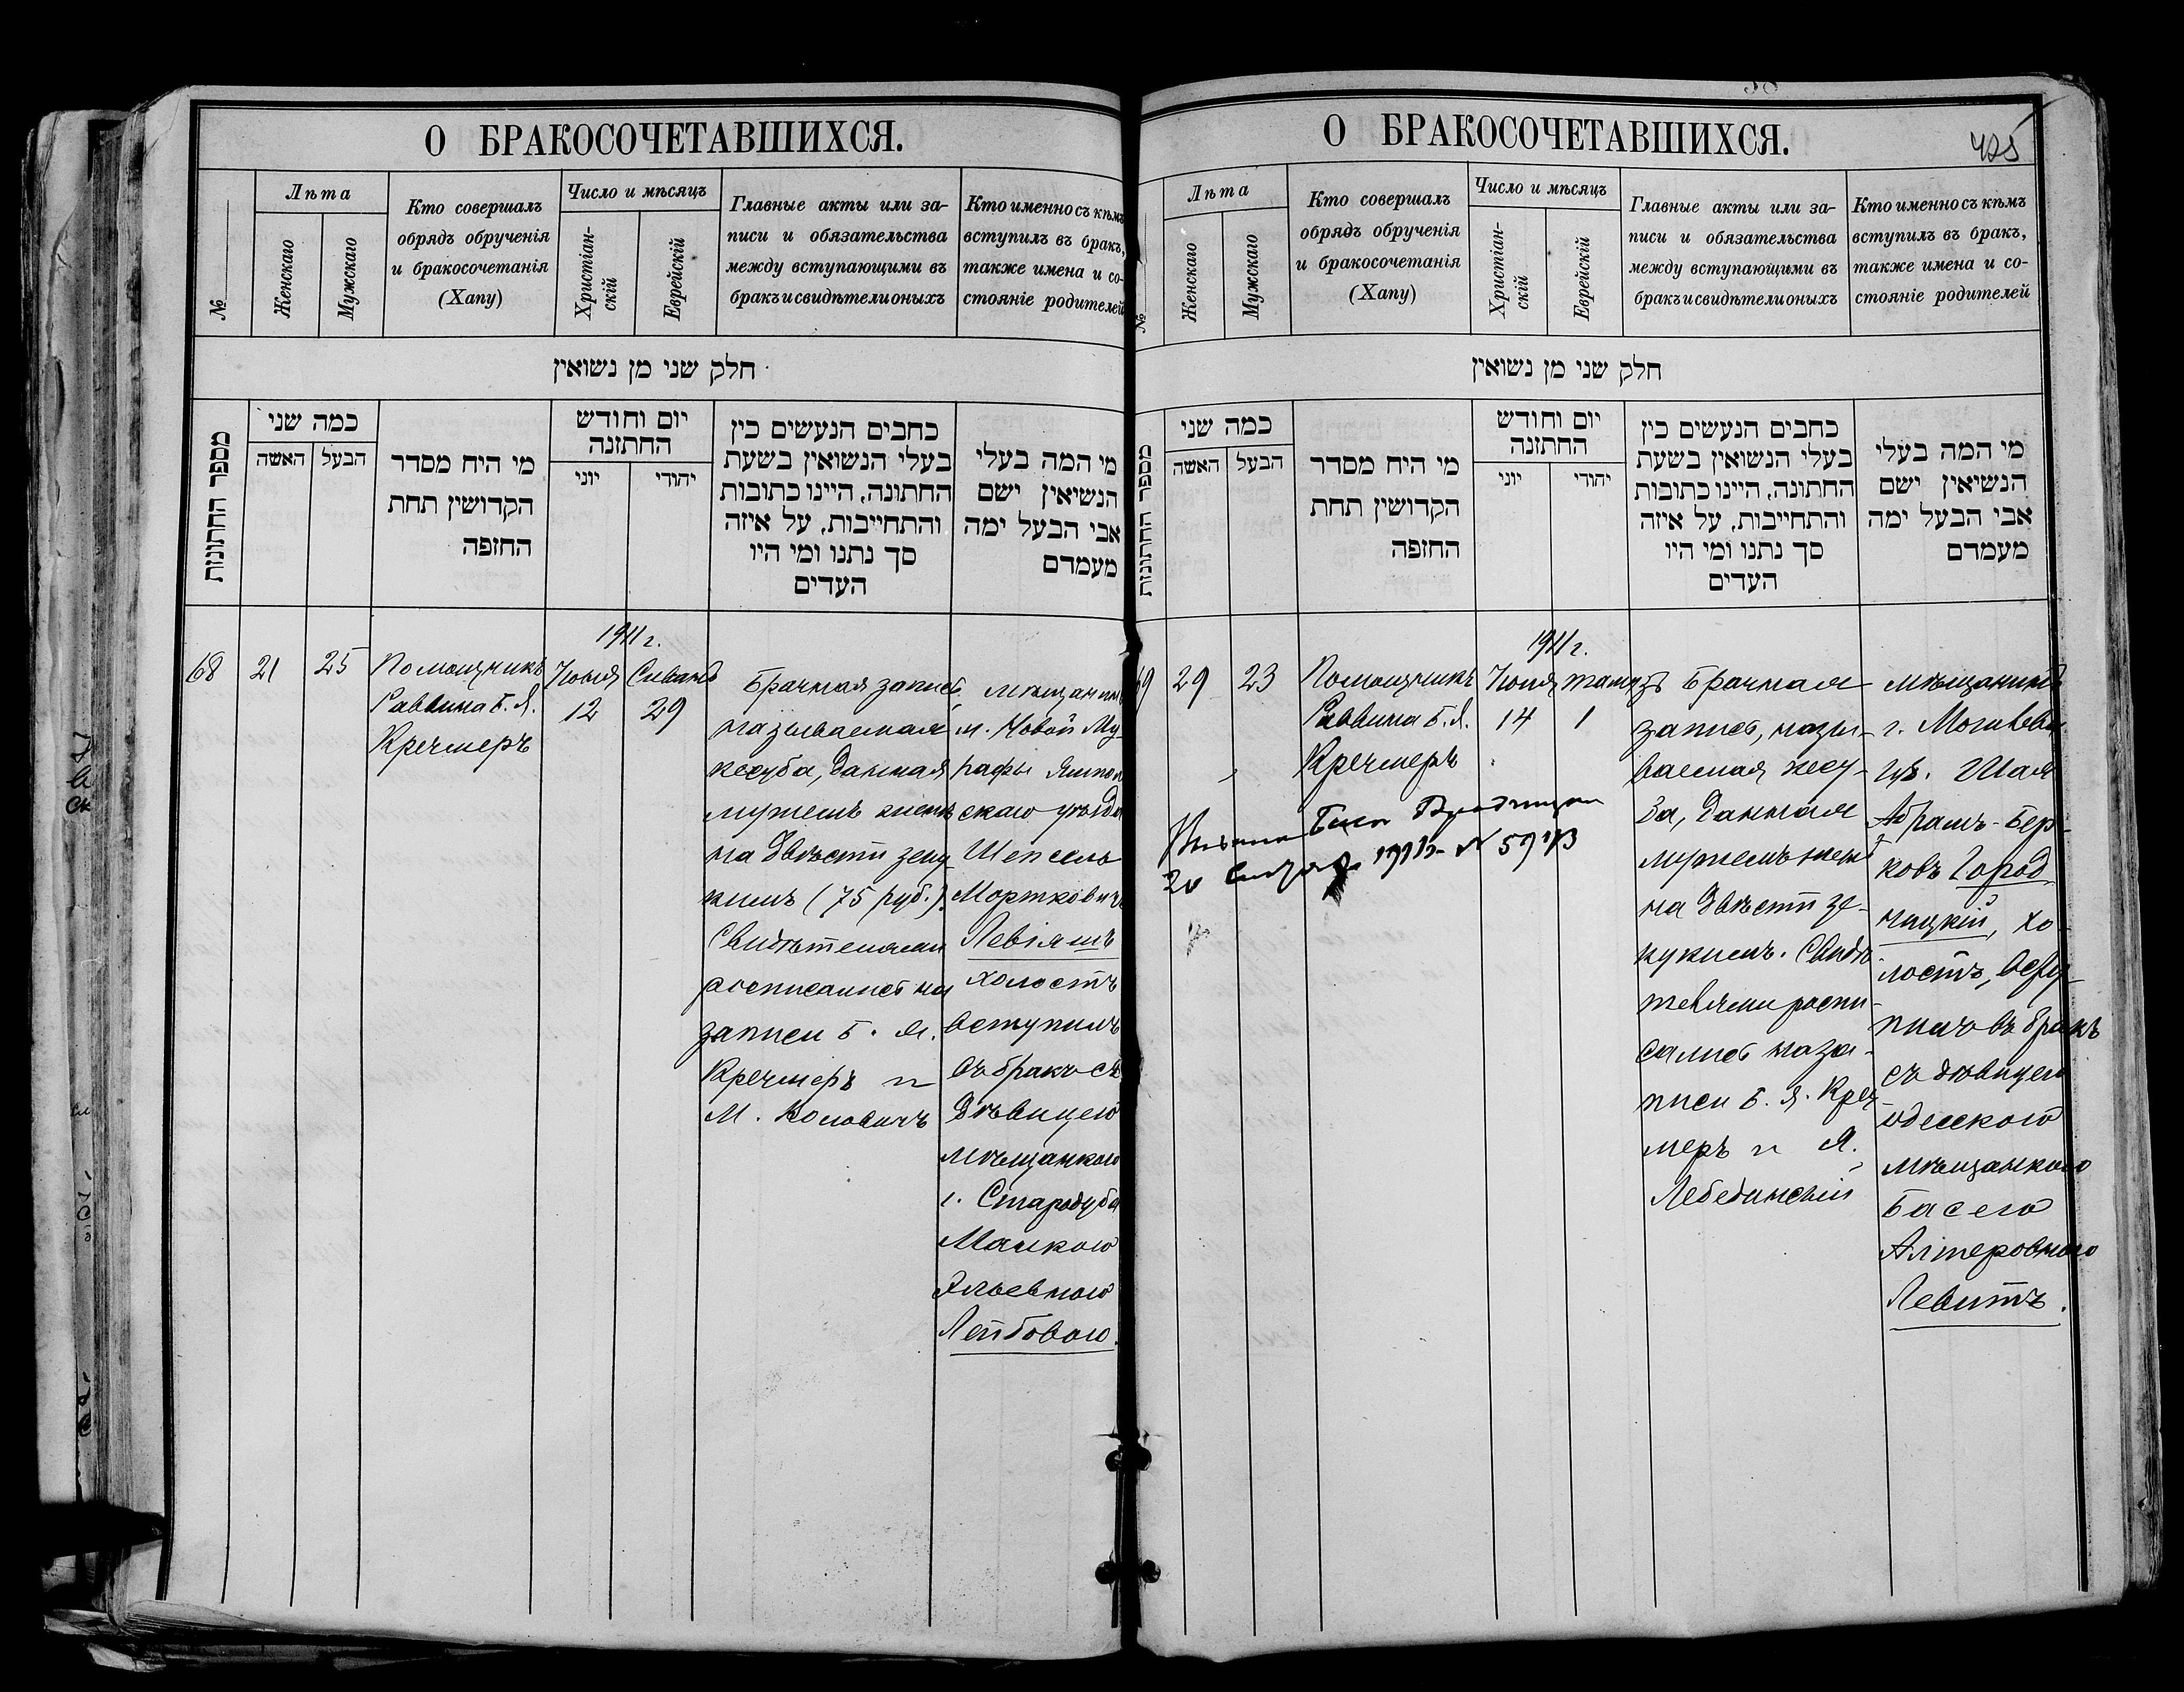 О БРАКОСОЧЕТАВШИХСЯ.
№
Лѣта
Женскаго
Мужскаго
Кто совершалъ
обрядъ обрученія
и бракосочетанія
(Хапу)
Число и мѣсяцъ
Христіан-
скій
Еврейскій
Главные акты или за-
писи и обязательства
между вступающими въ
бракъ и свидѣтели оныхъ
Кто именно съ кѣмъ
вступилъ въ бракъ,
также имена и со-
стояніе родителей
חלק שני מן נשואין
מספר החתונות
כמה שני
האשה
הבעל
מי היה מסדר
הקדושין תחת
החופה
יום וחודש
החתונה
יוני
יהודי
כתבים הנעשים בין
בעלי הנשואין בשעת
החתונה, היינו כתובות
והתחייבות, על איזה
סך נתנו ומי היו
העדים
מי המה בעלי
הנשיאין ישם
אבי הבעל ימה
מעמדם
68
21
25
Помощникъ
Раввина Б. Я.
Кречмеръ
1911 г.
Іюня
12
Сивана
29
Брачная запись,
называемая
кесуба, данная
мужемъ женѣ
на двѣсти зеку
кимъ (75 руб.).
Свидѣтелями
росписались на
записи Б. Я.
Кречмеръ и
М.
мѣщанинъ
м. Новой Му-
рафы Ямпол
скаго уѣзда
Шепсель
Мортковичъ
Левіямъ
холостъ
вступилъ
въ бракъ съ
дѣвицею
мѣщанкою
г. Стародуба
Манкою
Эльевною
Лейбовою.
О БРАКОСОЧЕТАВШИХСЯ.
425
№
Лѣта
Женскаго
Мужскаго
Кто совершалъ
обрядъ обрученія
и бракосочетанія
(Хапу)
Число и мѣсяцъ
Христіан-
скій
Еврейскій
Главные акты или за-
писи и обязательства
между вступающими въ
бракъ и свидѣтели оныхъ
Кто именно съ кѣмъ
вступилъ въ бракъ,
также имена и со-
стояніе родителей
חלק שני מן נשואין
מספר החתונות
כמה שני
האשה
הבעל
מי היה מסדר
הקדושין תחת
החופה
יום וחודש
החתונה
יוני
יהודי
כתבים הנעשים בין
בעלי הנשואין בשעת
החתונה, היינו כתובות
והתחייבות, על איזה
סך נתנו ומי היו
העדים
מי המה בעלי
הנשיאין ישם
אבי הבעל ימה
מעמדם
69
29
23
Помощникъ
Раввина Б. Я.
Кречмеръ
1911 г.
Іюня
14
Тамузъ
1
Брачная
запись, назы-
ваемая кесу-
ба, данная
мужемъ женѣ
на двѣсти зе-
кукимъ. Свидѣ-
телями роспи-
сались на за-
писи Б. Я. Креч-
меръ и Я.
Лебединскій
мѣщанинъ
г. Могилева
Шая
Абрамъ-Бер-
ковъ Город
ницкій, хо-
лостъ, всту-
пилъ въ бракъ
съ дѣвицею
одесскою
мѣщанкою
Басею
Алтеровною
Левитъ.
20
№ 59